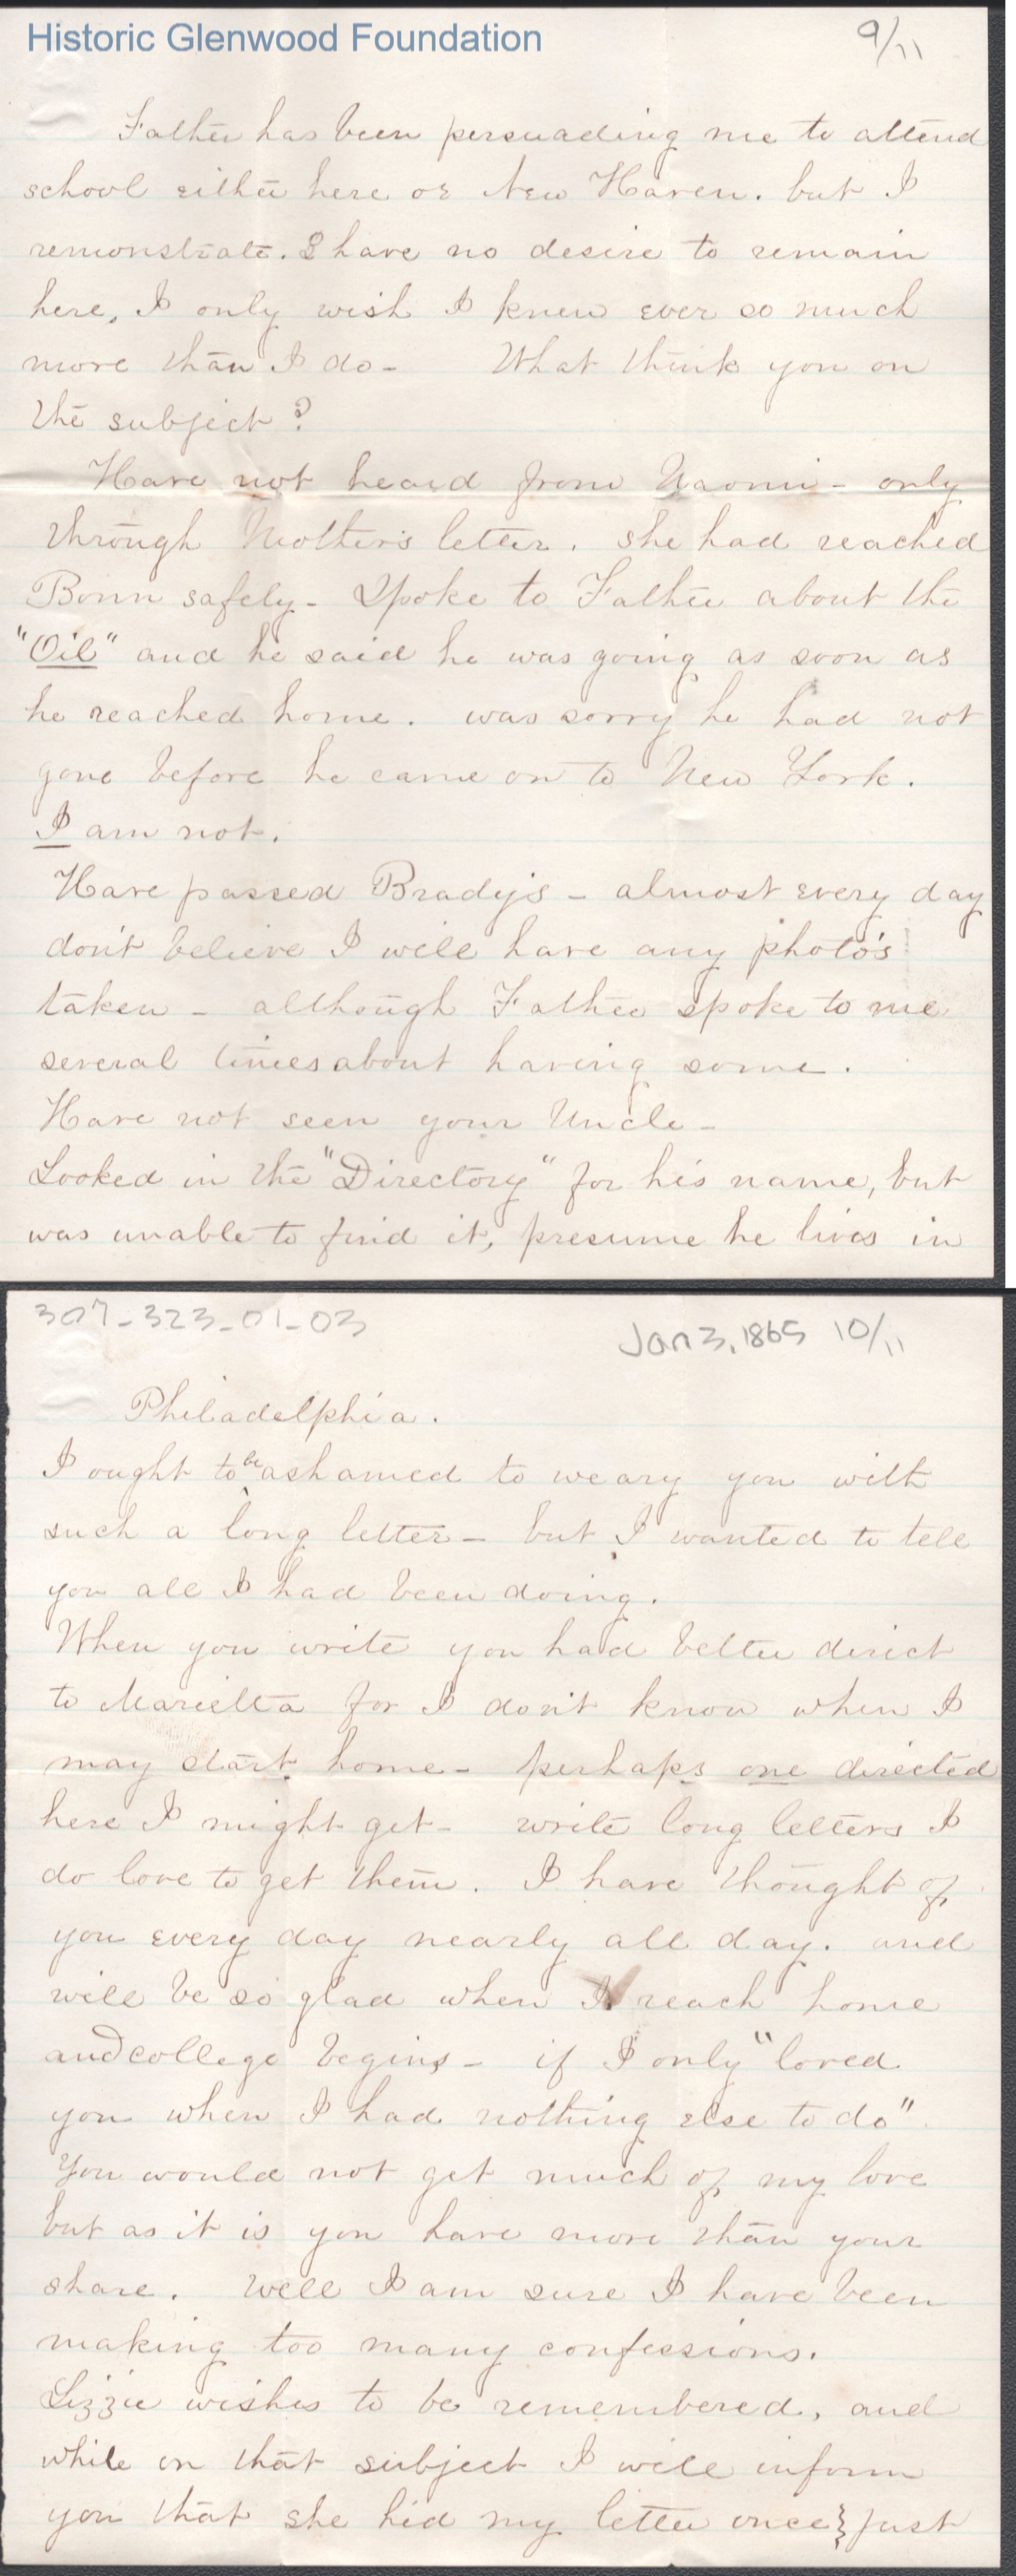 Historic Glenwood Foundation
9/11
Father has been persuading me to attend
school either here or New Haven. but I
remonstrate. I have no desire to remain
here, I only wish I knew ever so much
more than I do - What think you on
the subject?
Have not heard from Naomi - only
through Mother's letter. she had reached
Bonn safely - Spoke to Father about the
"Oil" and he said he was going as soon as
he reached home. was sorry he had not
gone before he came on to New York.
I am not.
Have passed Brady's - almost every day
don't believe I will have any photo's
taken - although Father spoke to me
several times about having some.
Have not seen your Uncle -
Looked in the "Directory" for his name, but
was unable to find it, presume he lives in
307-323-01-03
Jan 3, 1865 10/11
Philadelphia.
I ought to be ashamed to weary you with
such a long letter - but I wanted to tell
you all I had been doing.
When you write you had better direct
to Marietta for I don't know when I
may start home - perhaps one directed
here I might get - write long letters I
do love to get them. I have thought of
you every day nearly all day. and
will be so glad when I reach home
and college begins - if I only "loved
you when I had nothing else to do".
You would not get much of my love
but as it is you have more than your
share. Well I am sure I have been
making too many confessions.
Lizzie wishes to be remembered, and
while on that subject I will inform
you that she hid my letter once } just